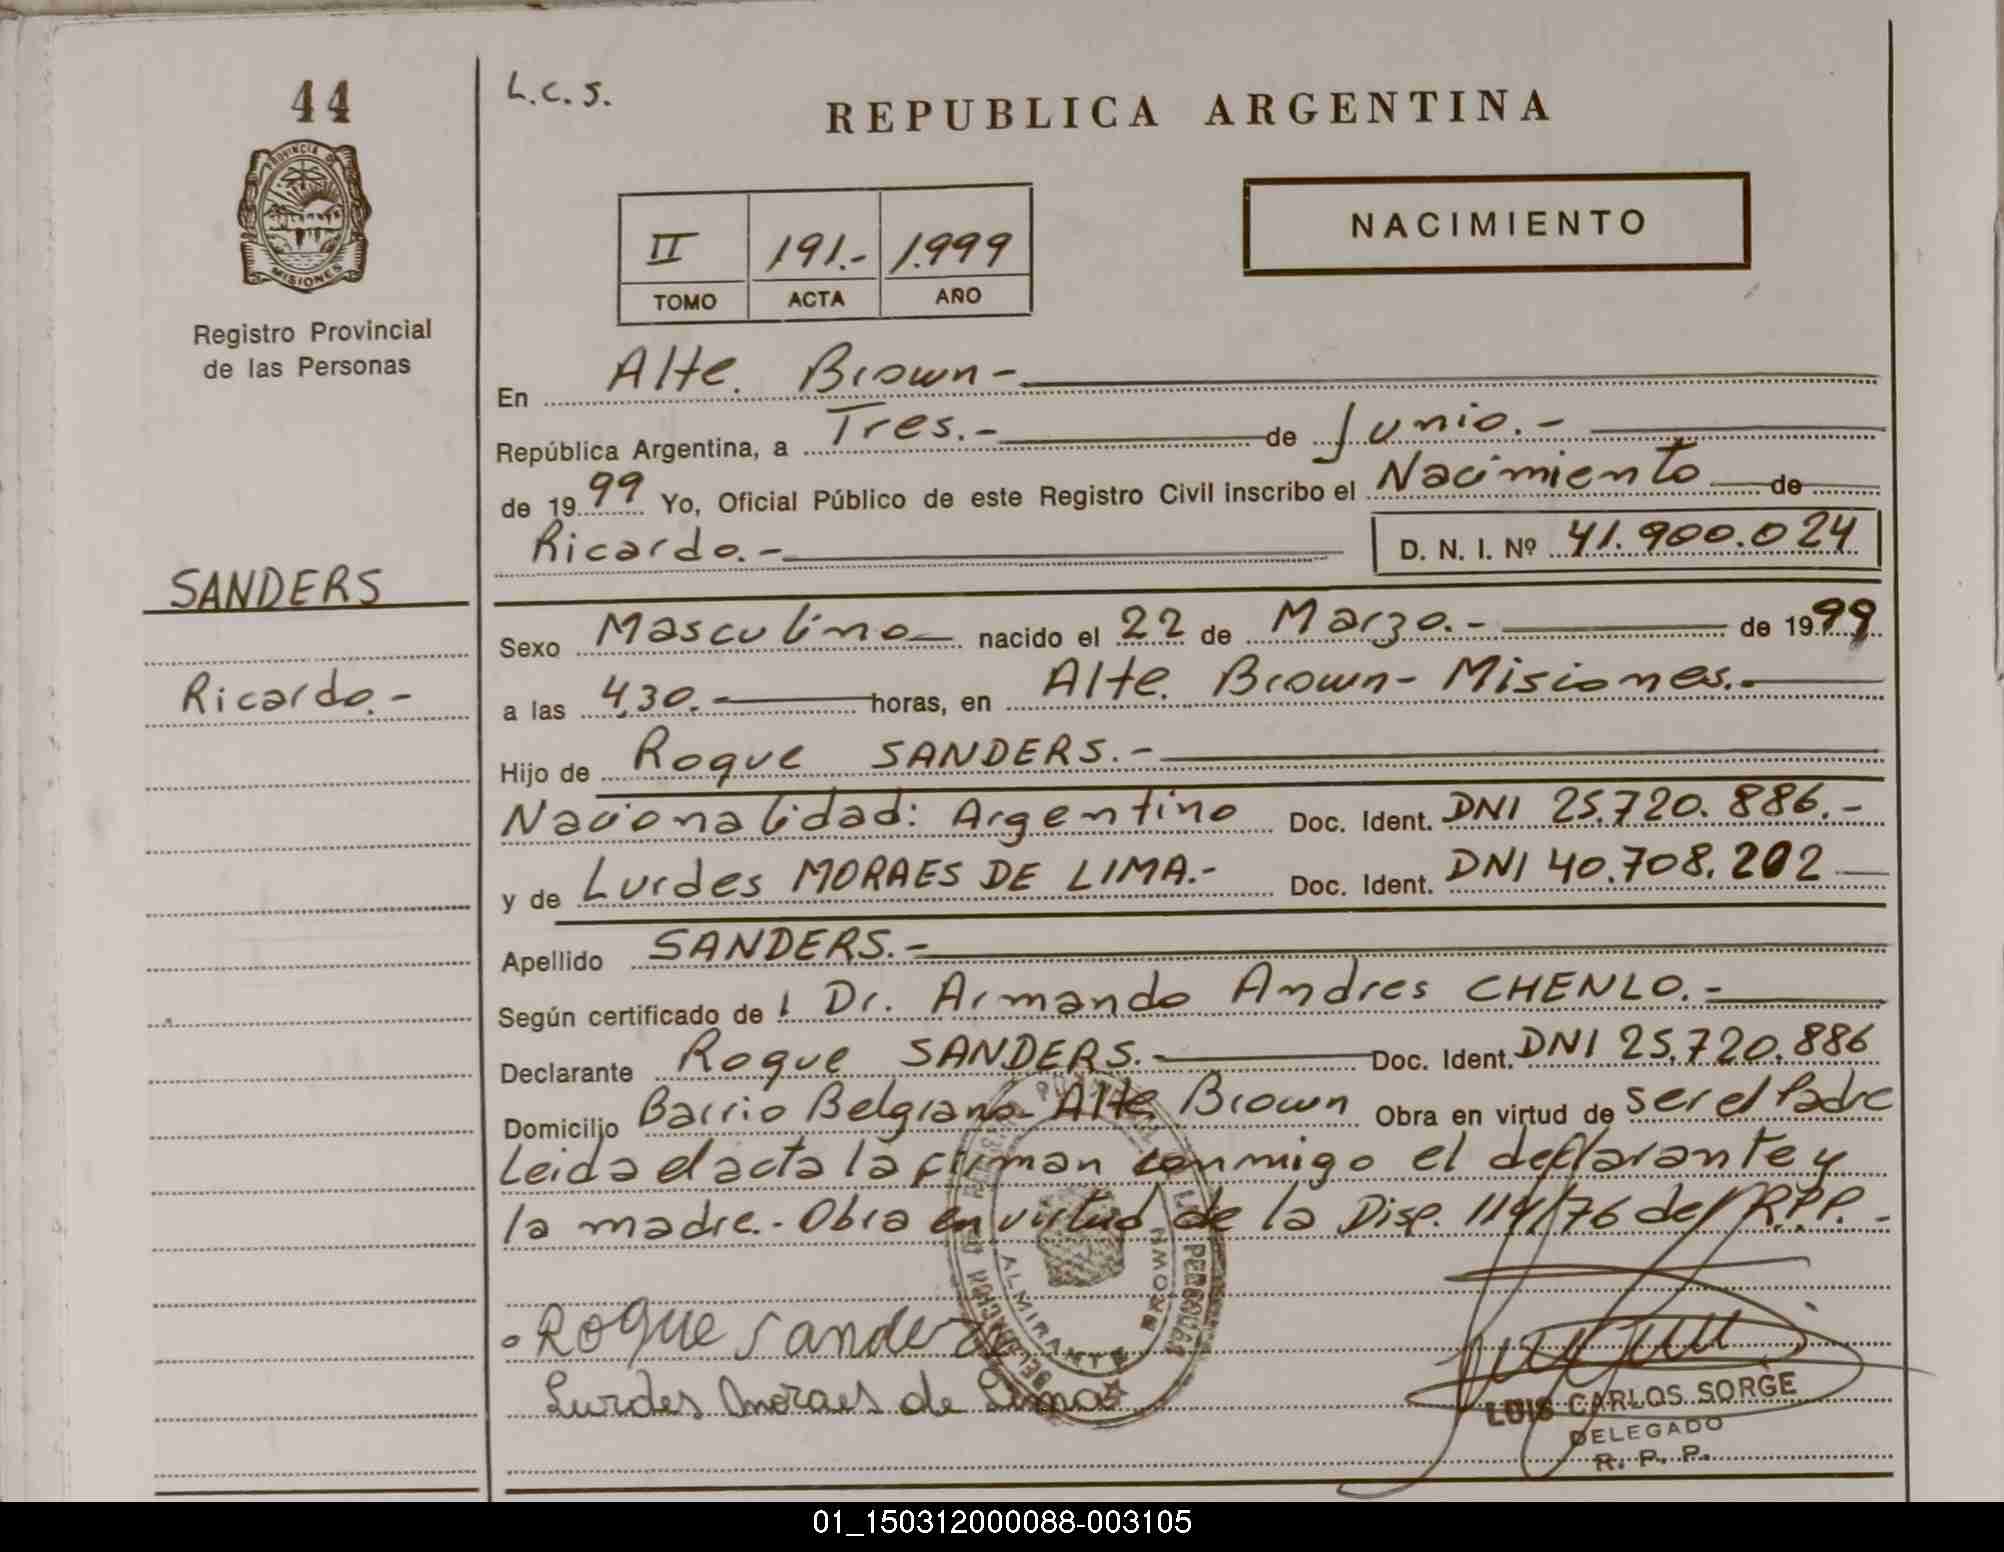 44
L.C.S.
REPUBLICA ARGENTINA
PROVINCIA DE
MISIONES
Registro Provincial
de las Personas
NACIMIENTO
II 191.- 1.999
TOMO ACTA AÑO
En Alte. Brown-
República Argentina, a Tres.- de Junio.-
de 1999 Yo, Oficial Público de este Registro Civil inscribo el Nacimiento de
Ricardo.- D. N. I. Nº 41.900.024
SANDERS
Ricardo.-
Sexo Masculino nacido el 22 de Marzo.- de 1999
a las 4,30.- horas, en Alte. Brown- Misiones.-
Hijo de Roque SANDERS.-
Nacionalidad: Argentino Doc. Ident. DNI 25.720.886.-
y de Lurdes MORAES DE LIMA.- Doc. Ident. DNI 40.708.202
Apellido SANDERS.-
Según certificado de l Dr. Armando Andres CHENLO.-
Declarante Roque SANDERS.- Doc. Ident. DNI 25.720.886
Domicilio Barrio Belgrano- Alte Brown Obra en virtud de ser el Padre
Leida el acta la firman conmigo el declarante y
la madre.- Obra en virtud de la Disp. 114/76 del R.P.P.-
Roque Sanders
Lurdes Moraes de Lima
ALMIRANTE BROWN
LUIS CARLOS SORGE
DELEGADO
R. P. P.
01_150312000088-003105